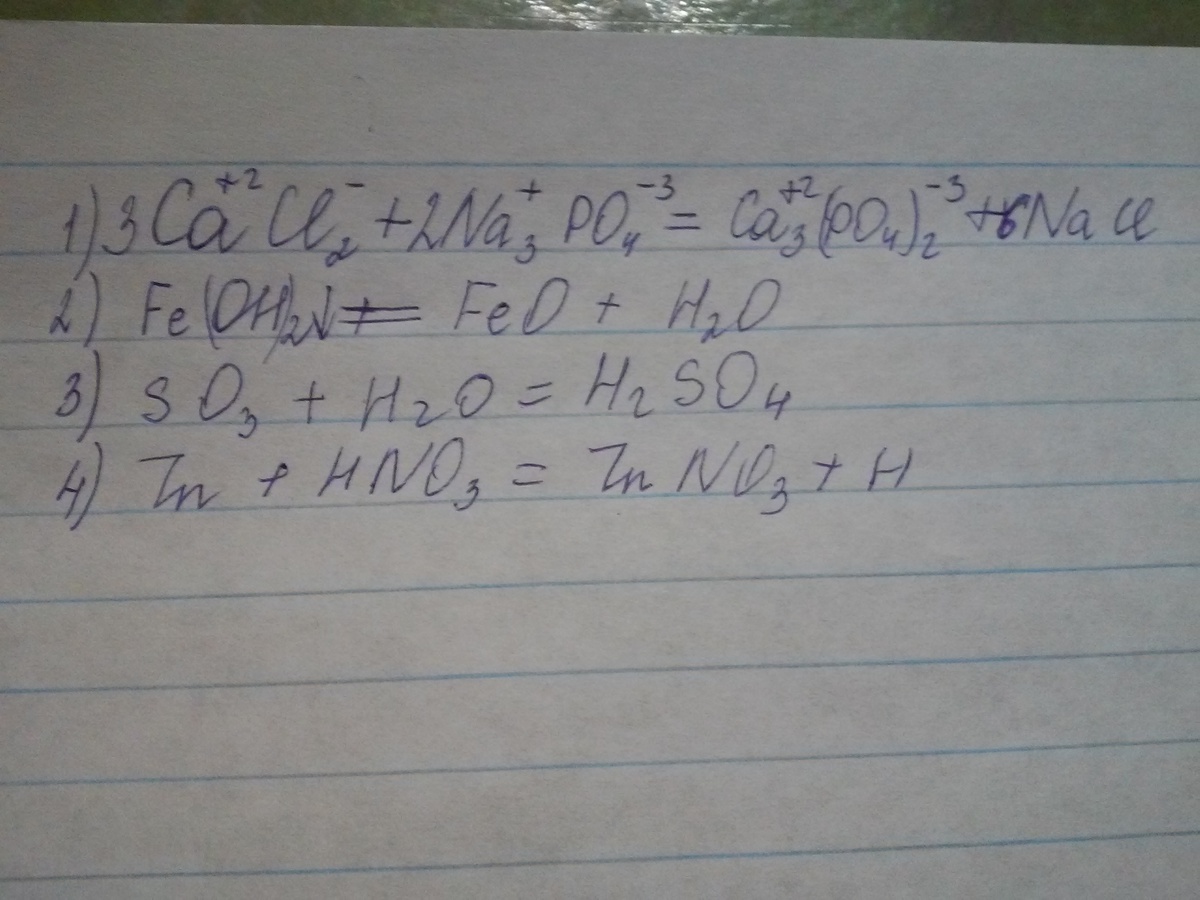 1) 3Ca⁺²Cl₂⁻ + 2Na₃⁺PO₄⁻³ = Ca₃⁺²(PO₄)₂⁻³ + 6NaCl
2) Fe(OH)₂↓ = FeO + H₂O
3) SO₃ + H₂O = H₂SO₄
4) Zn + HNO₃ = ZnNO₃ + H